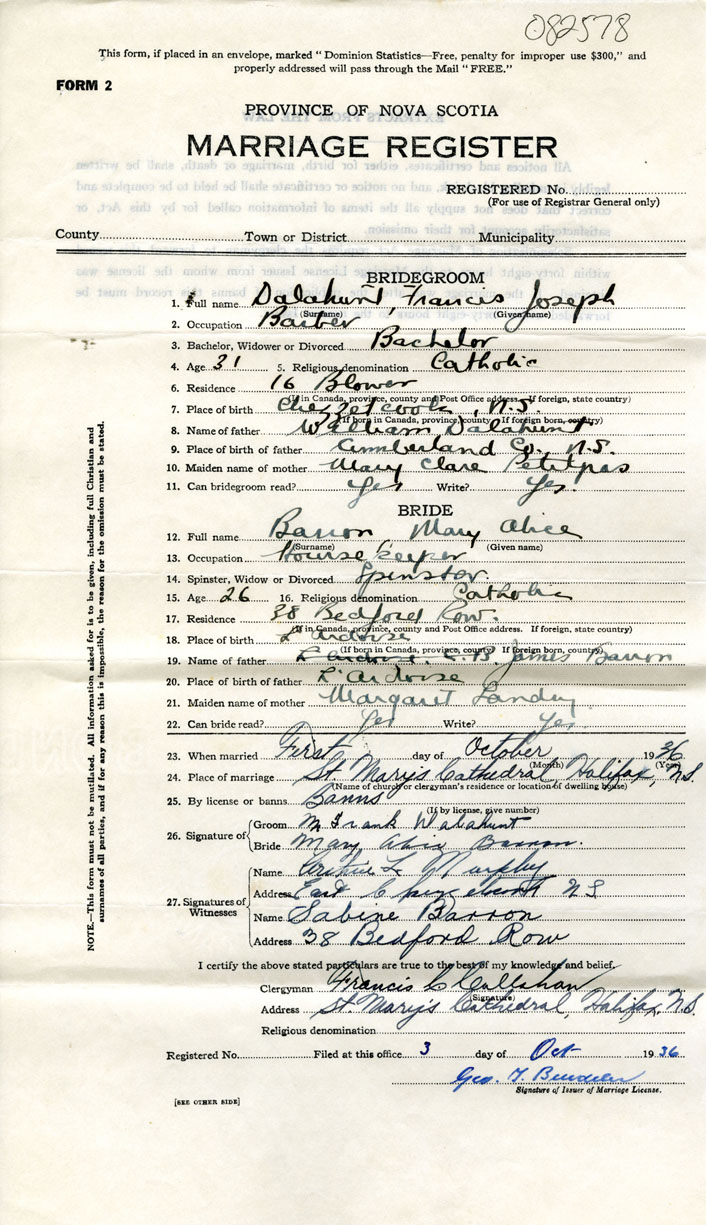 082578
This form, if placed in an envelope, marked " Dominion Statistics—Free, penalty for improper use $300," and
properly addressed will pass through the Mail " FREE."
FORM 2
PROVINCE OF NOVA SCOTIA
MARRIAGE REGISTER
REGISTERED No.
(For use of Registrar General only)
County Town or District Municipality
BRIDEGROOM
1. Full name Dalahunt, Francis Joseph
(Surname) (Given name)
2. Occupation Barber
3. Bachelor, Widower or Divorced Bachelor
4. Age 31 5. Religious denomination Catholic
6. Residence 16 Blower
(If in Canada, province, county and Post Office address. If foreign, state country)
7. Place of birth Chezzetcook, N.S.
(If born in Canada, province, county. If foreign born, country)
8. Name of father William Dalahunt
9. Place of birth of father Cumberland Co. N.S.
10. Maiden name of mother Mary Clare Petitpas
11. Can bridegroom read? Yes Write? Yes.
BRIDE
12. Full name Barron Mary Alice
(Surname) (Given name)
13. Occupation Housekeeper
14. Spinster, Widow or Divorced Spinster.
15. Age 26 16. Religious denomination Catholic
17. Residence 38 Bedford Row.
(If in Canada, province, county and Post Office address. If foreign, state country)
18. Place of birth L'Ardoise
(If born in Canada, province, county. If foreign born, country)
19. Name of father L'Ardoise, C.B. James Barron
20. Place of birth of father L'Ardoise
21. Maiden name of mother Margaret Landry
22. Can bride read? Yes Write? Yes.
23. When married First day of October 1936
(Month) (Year)
24. Place of marriage St. Mary's Cathedral, Halifax, N.S.
(Name of church or clergyman's residence or location of dwelling house)
25. By license or banns Banns
(If by license, give number)
26. Signature of Groom Frank Dalahunt
Bride Mary Alice Barron.
27. Signatures of Witnesses
Name L. Murphy
Address East Chezzetcook N S
Name Sabine Barron
Address 38 Bedford Row
I certify the above stated particulars are true to the best of my knowledge and belief.
Clergyman Francis C Callahan
(Signature)
Address St. Mary's Cathedral, Halifax, N.S.
Religious denomination
Registered No. Filed at this office 3 day of Oct 1936
Geo. T.
Signature of Issuer of Marriage License.
[SEE OTHER SIDE]
NOTE.—This form must not be mutilated. All information asked for is to be given, including full Christian and
surnames of all parties, and if for any reason this is impossible, the reason for the omission must be stated.